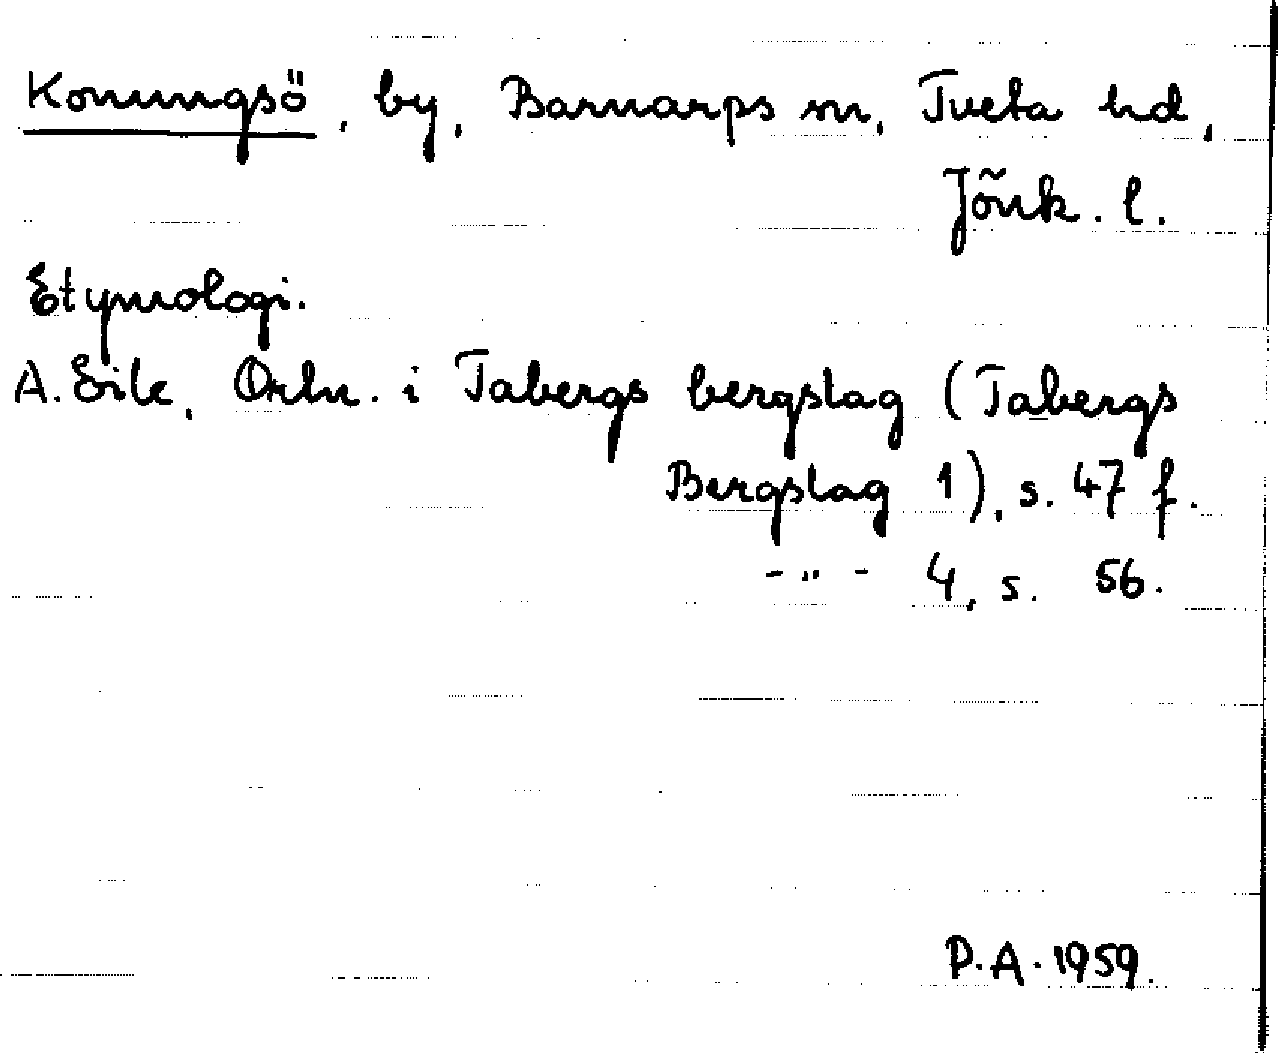 Konungsö, by, Barnarps sn, Tveta hd,
Jönk. l.
Etymologi.
A. Eile, Ortn. i Tabergs bergslag (Tabergs
Bergslag 1), s. 47 f.
- „ - 4, s. 56.
P.A. 1959.